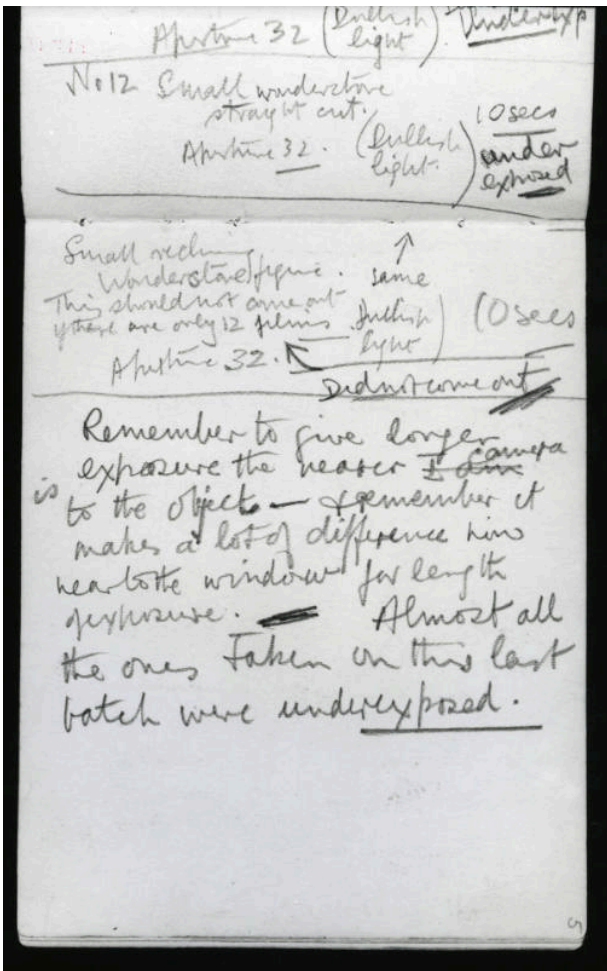 Aperture 32 (Dullish light) Underexp
No 12 Small wonderstone
straight cut.
10 secs
Aperture 32. (Dullish light.) under exposed
Small reclining
Wonderstone figure.
↑ same
This should not come out
if there are only 12 films
Dullish light) 10 secs
Aperture 32.
Did not come out
Remember to give longer
exposure the nearer camera
is to the object — & remember it
makes a lot of difference how
near to the window for length
of exposure. — Almost all
the ones Taken on this last
batch were underexposed.